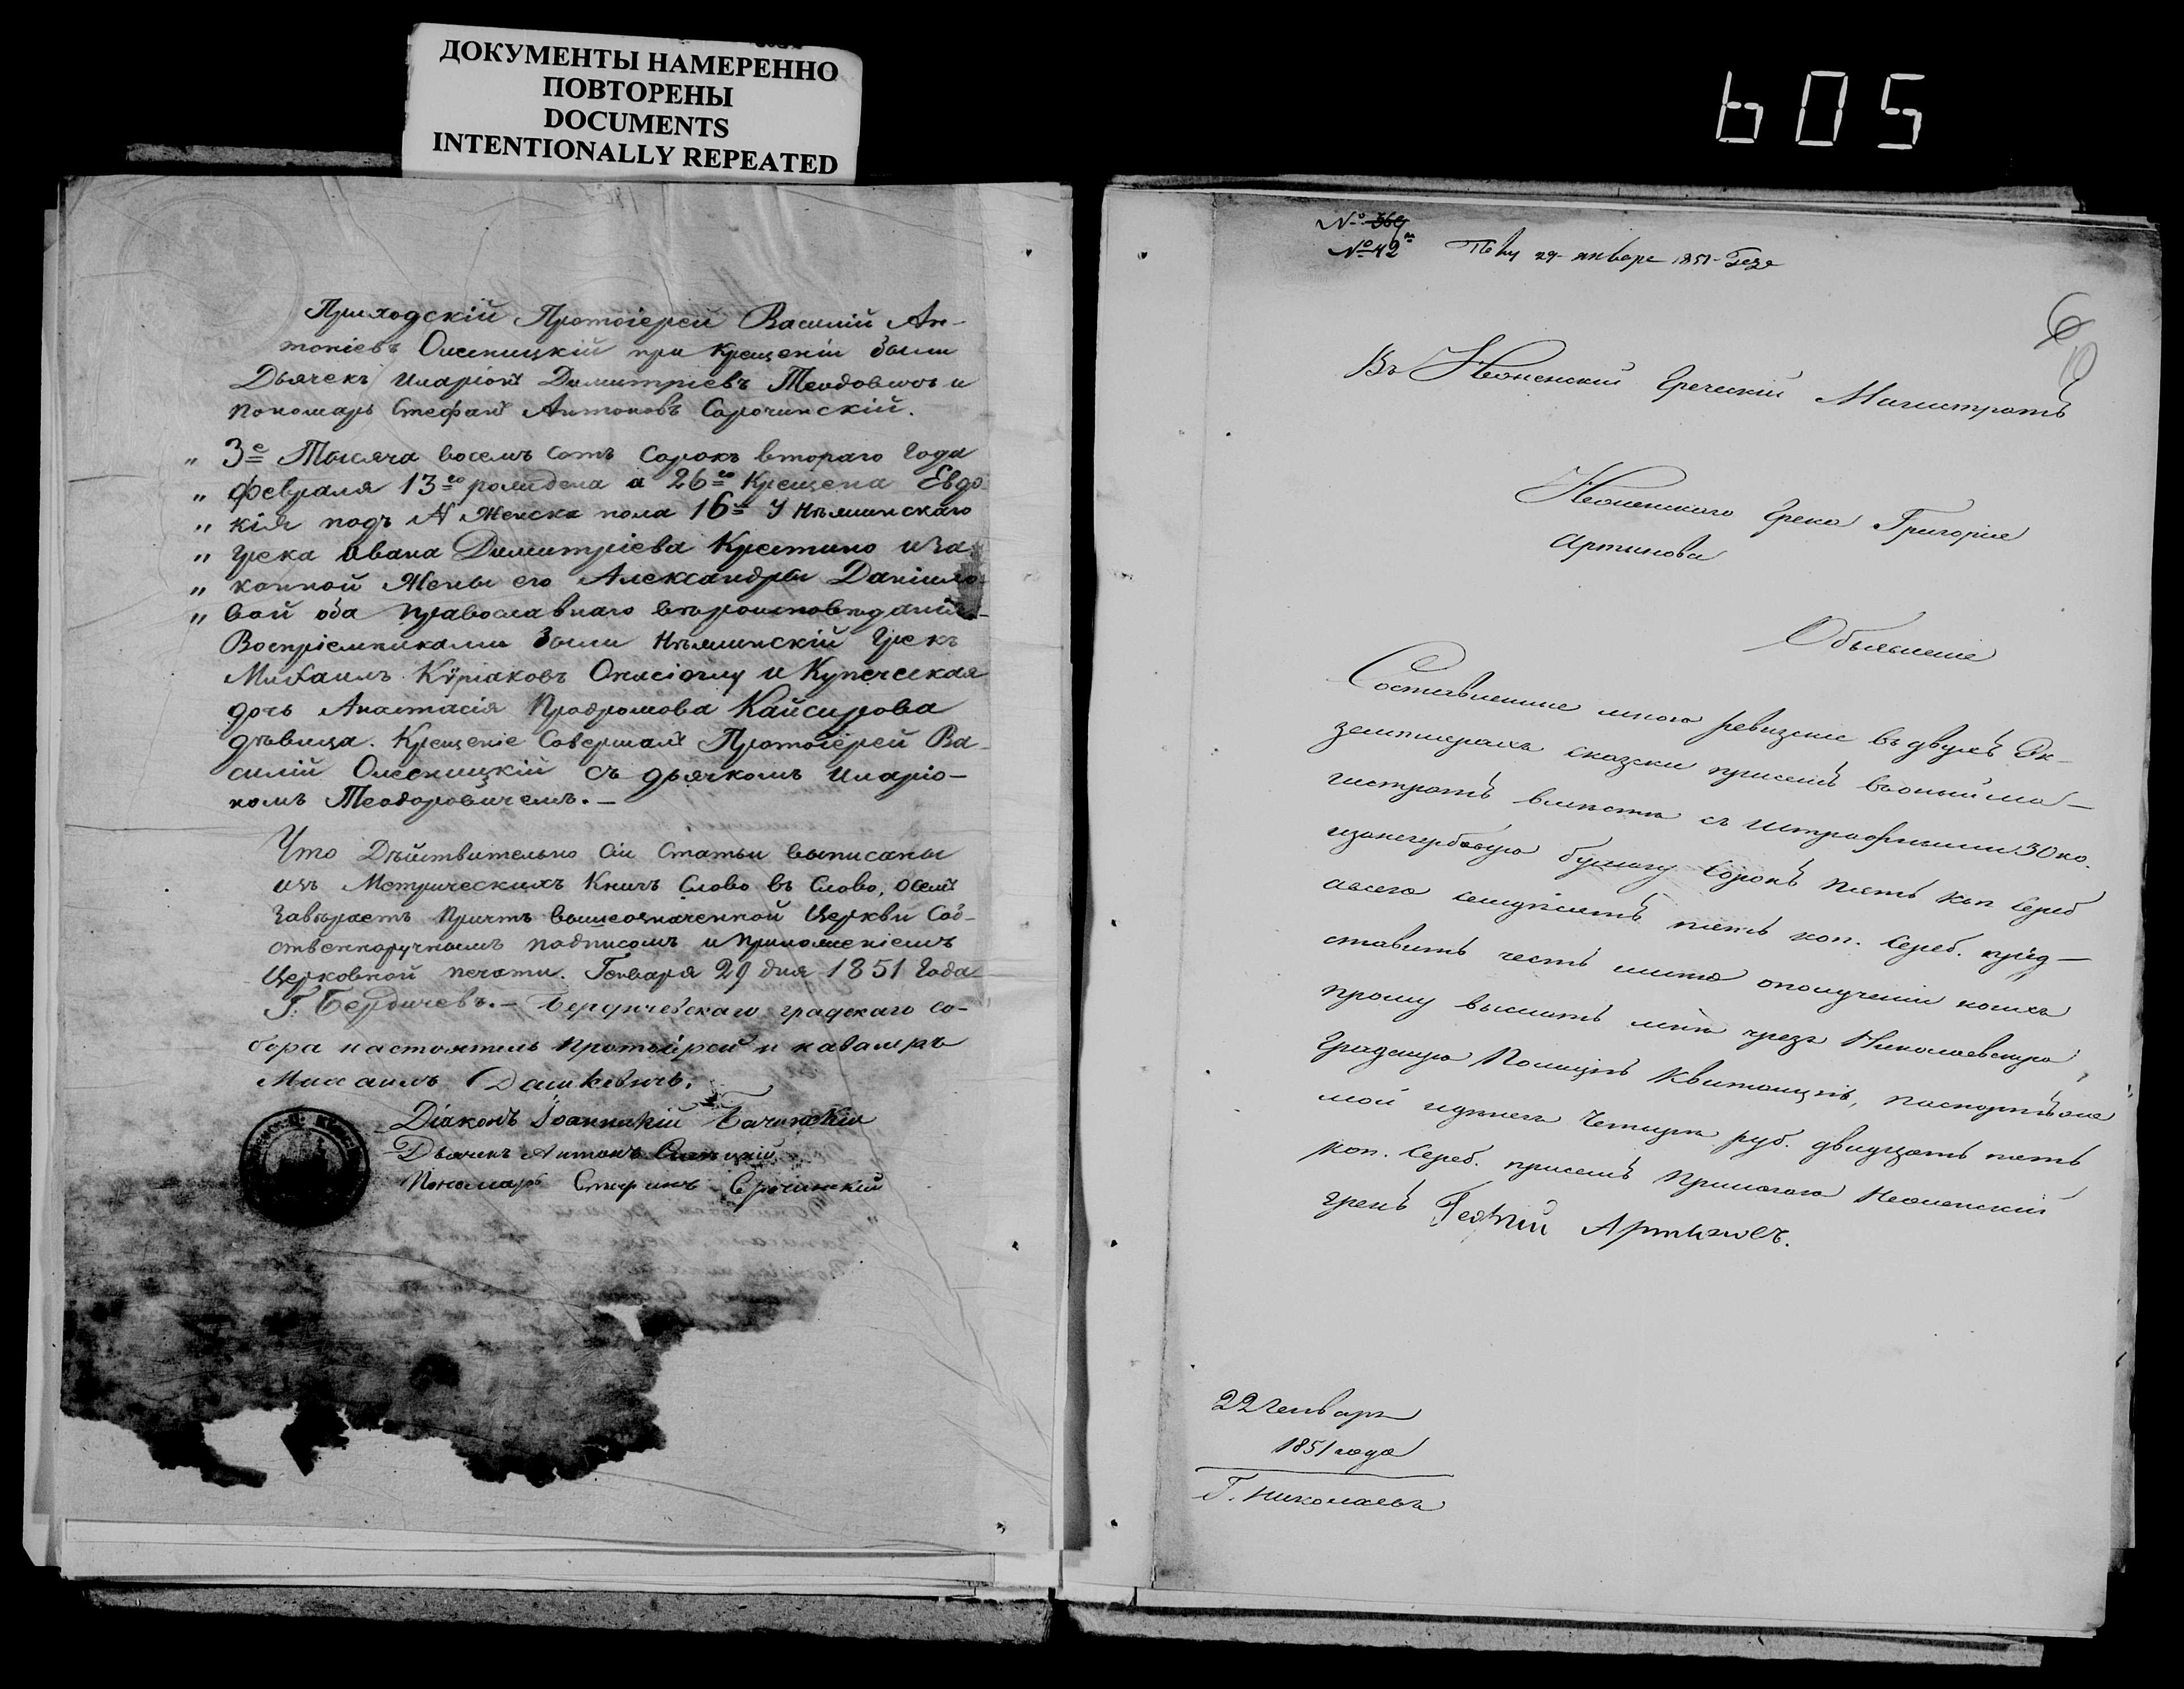 ДОКУМЕНТЫ НАМЕРЕННО
ПОВТОРЕНЫ
DOCUMENTS
INTENTIONALLY REPEATED
605
Приходскій Протоіерей Василій Ан-
тоніевъ Олесницкій при крещеніи были
Дьячекъ Иларіонъ Димитріевъ и
пономарь Стефанъ Антоновъ Сорочинскій.
„ 3е Тысяча восемь сотъ сорокъ втораго года
„ февраля 13го рождена а 26го крещена Евдо-
„ кія подъ № женска пола 16м у Нѣжинскаго
„ грека Ивана Димитріева Крестино иза
„ конной жены его Александры Даніило-
„ вой оба православнаго вѣроисповѣданія
Воспріемниками были Нѣжинскій Грекъ
Михаилъ Кѵріаковъ и Купеческая
дочь Анастасія Продромова Кайсирова
дѣвица. Крещеніе Совершалъ Протоіерей Ва-
силій Олесницкій съ дьячкомъ Иларіо-
номъ Теодоровичемъ.—
Что Дѣйствительно Сіи Статьи выписаны
изъ Метрическихъ Книгъ Слово въ Слово, о семъ
завѣряетъ Причтъ вышеозначенной Церкви Соб-
ственноручнымъ подписомъ и приложеніемъ
Церковной печати. Генваря 29 дня 1851 Года
Г. Бердичевъ.— Бердичевскаго градскаго со-
бора настоятель протоіерей и кавалеръ
Михаилъ Дашкевичъ.
Діаконъ Іоанникій
Дьячекъ Антонъ
Пономарь Стефанъ Сорочинскій
№ 369
№ 42 29 января 1851
6
10
Въ Нѣженскій Греческій Магистратъ
Нѣженскаго Грека Григорія
Артинова
Объявленіе
Составленные мною ревизскіе въ двухъ Эк-
земплярахъ сказки присемъ въ оный ма-
гистратъ вмѣстѣ съ штрафными 30 ко.
изанегербовую бумагу сорокъ пять коп Сереб
авсего семдѣсятъ пять коп. Сереб. пред-
ставить честь имѣю ополученіи коихъ
прошу выслать мнѣ чрезъ Николаевскую
Градскую Полицію Квитанцію, паспортъ же
мой идѣнегъ Четыри руб. двадцать пять
коп. Сереб. присемъ Прилагаю Нѣженскій
грекъ Артыновъ.
22 Генваря
1851 года
Г. Николаевъ